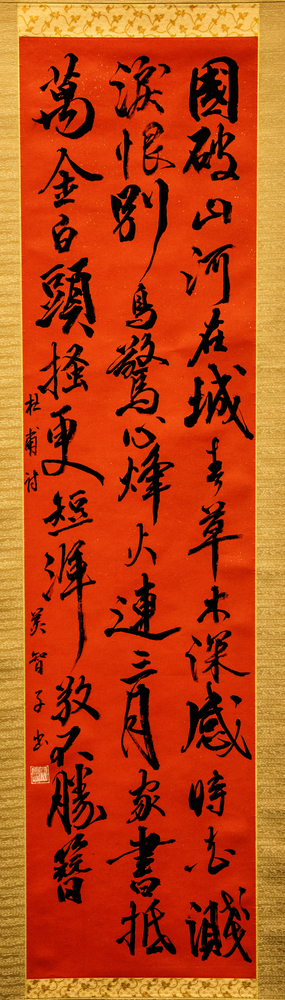 國破山河在城春草木深感時花濺
淚恨別鳥驚心烽火連三月家書抵
萬金白頭搔更短渾欲不勝簪
杜甫詩 美智子書